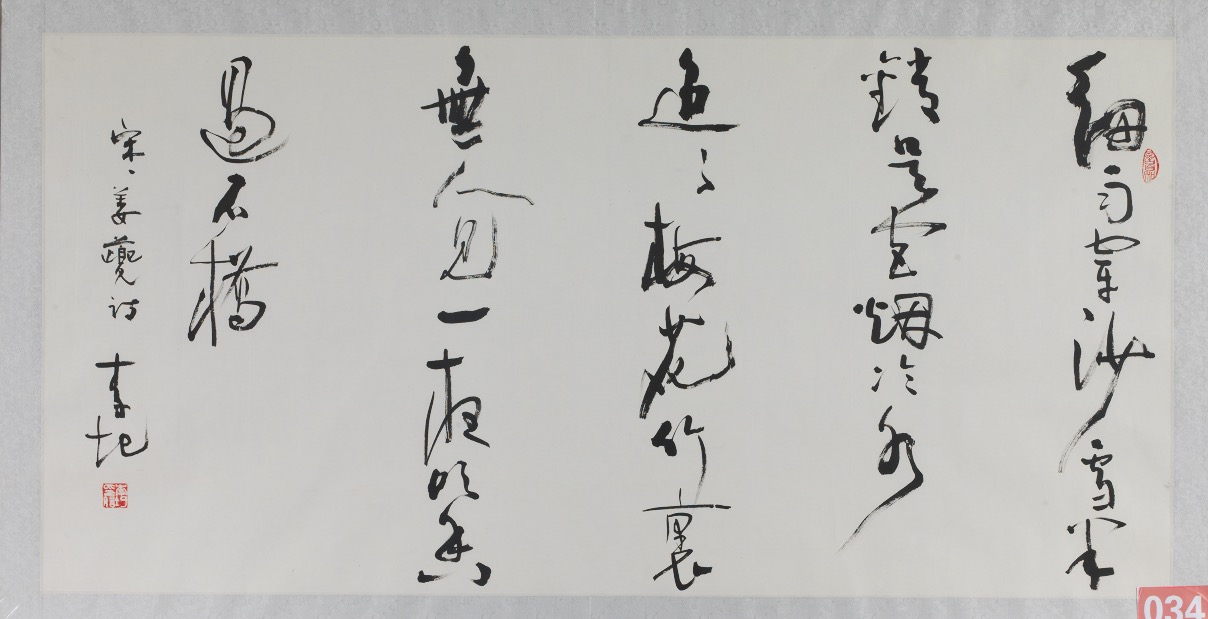 細草穿沙雪半
銷吴宫烟冷水
迢々梅花竹裏
無人見一夜吹香
過石橋
宋、姜夔詩
034